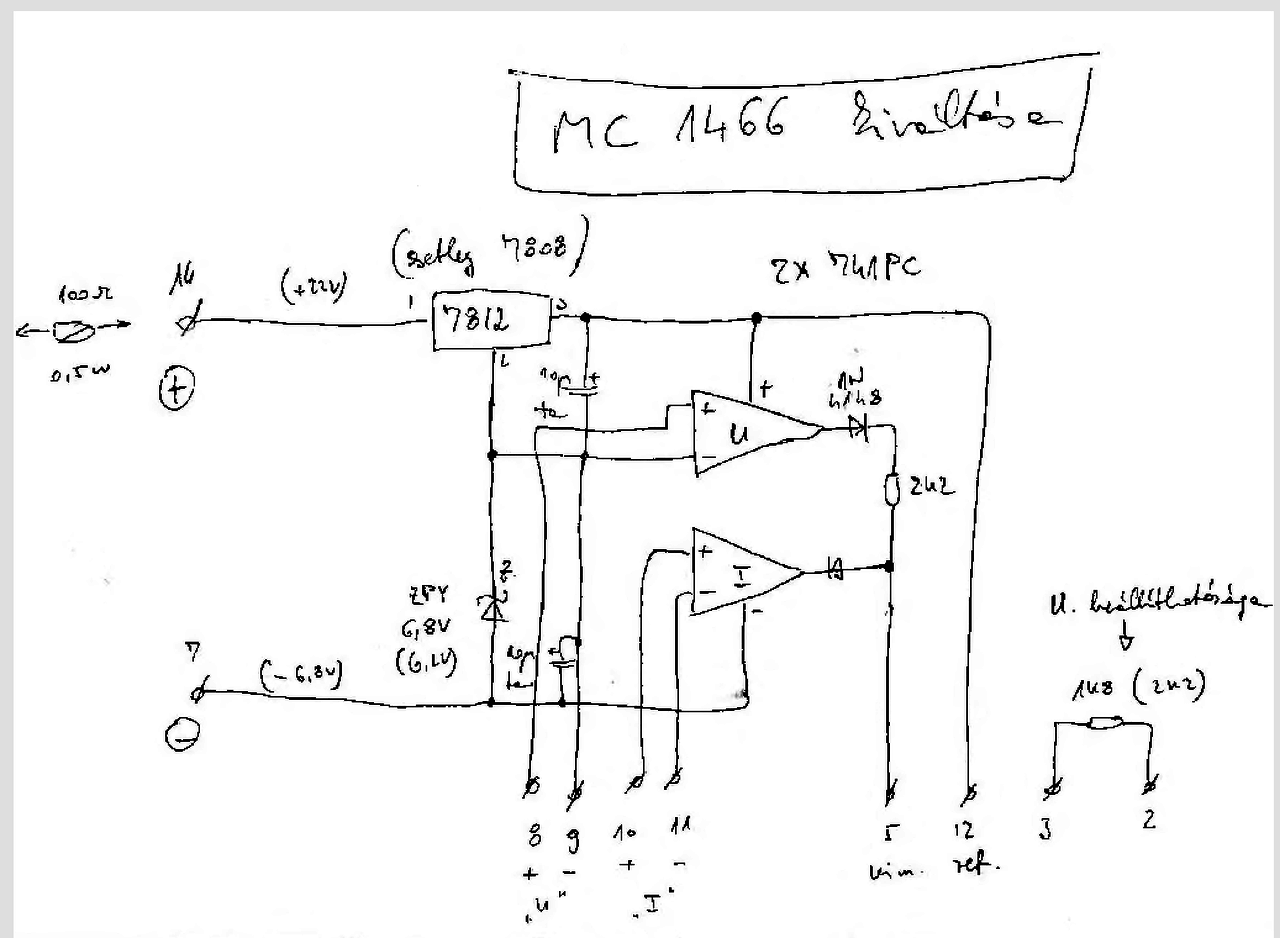 MC 1466 kiváltása
(esetleg 7808)
2x 741PC
100Ω
14
(+22V)
1
7812
3
2
0,5W
+
10µ
+
ta
+
1N
4148
+
U
-
2k2
+
I
-
-
Z
ZPY
6,8V
(6,2V)
10µ
+
ta
U. beállíthatósága
7
(-6,8V)
-
1k8 (2k2)
8 9 10 11 5 12 3 2
+ - + - kim. ref.
„U" „I"